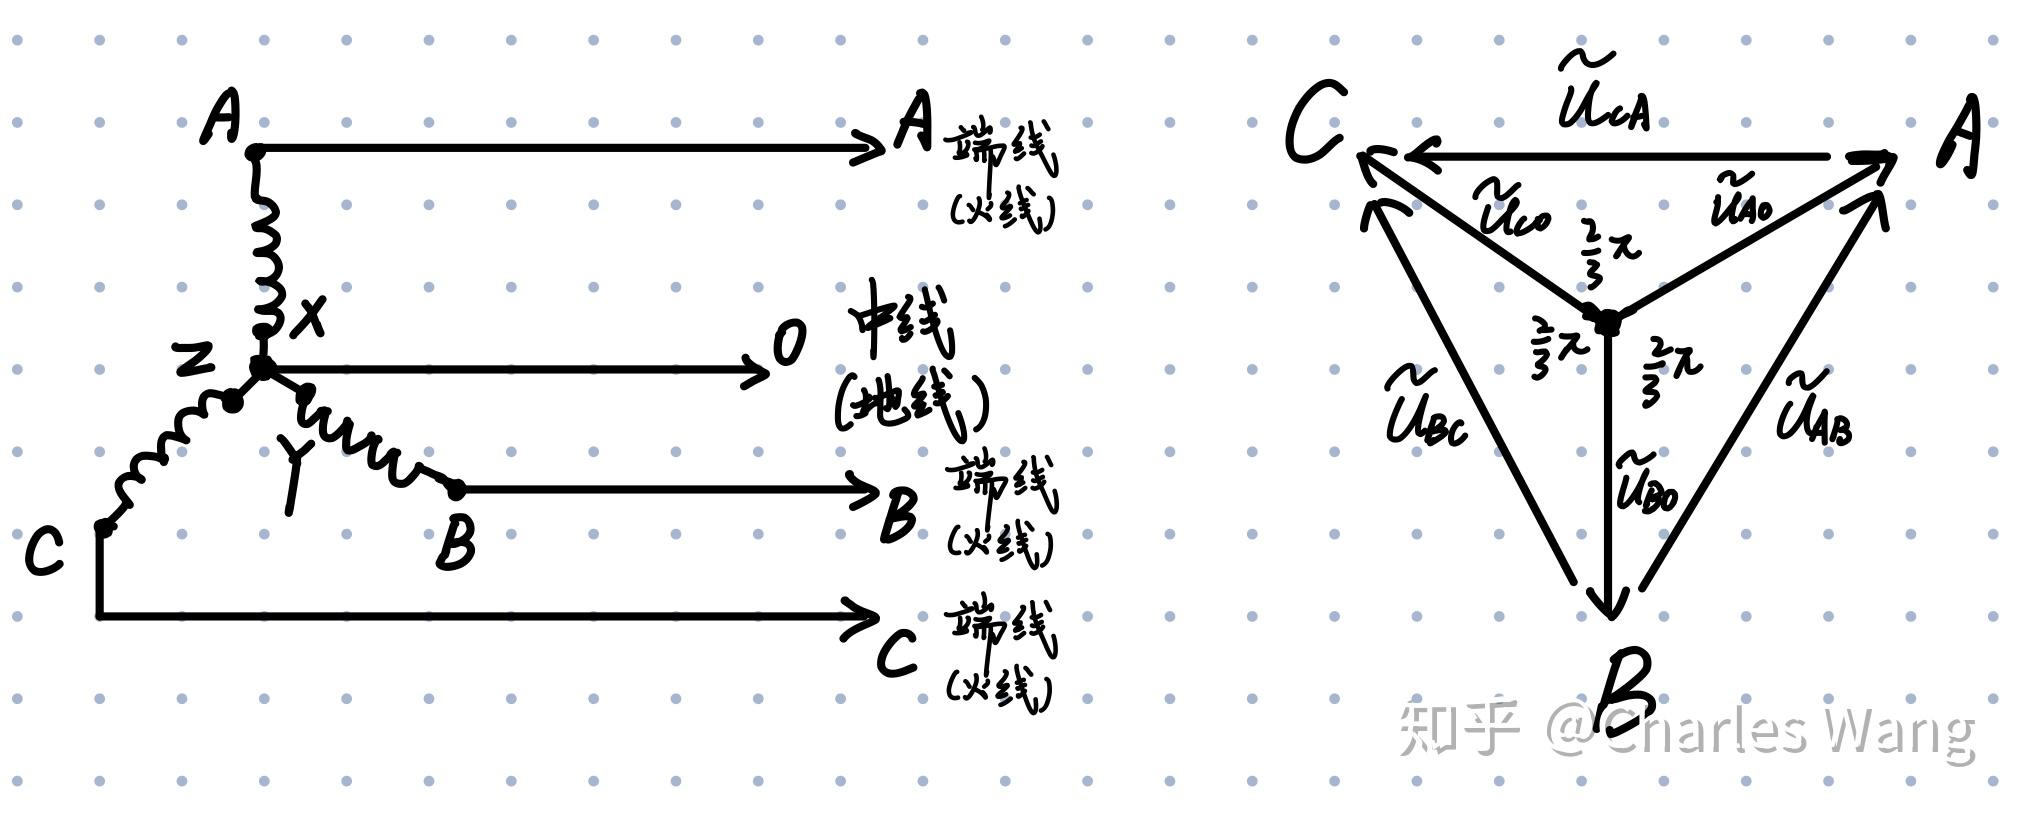 A
A 端线
(火线)
X
Z
O 中线
(地线)
Y
B
B 端线
(火线)
C
C 端线
(火线)
C
ũCA
A
ũCO
ũAO
2/3 π
2/3 π
2/3 π
ũBC
ũAB
ũBO
B
知乎 @Charles Wang